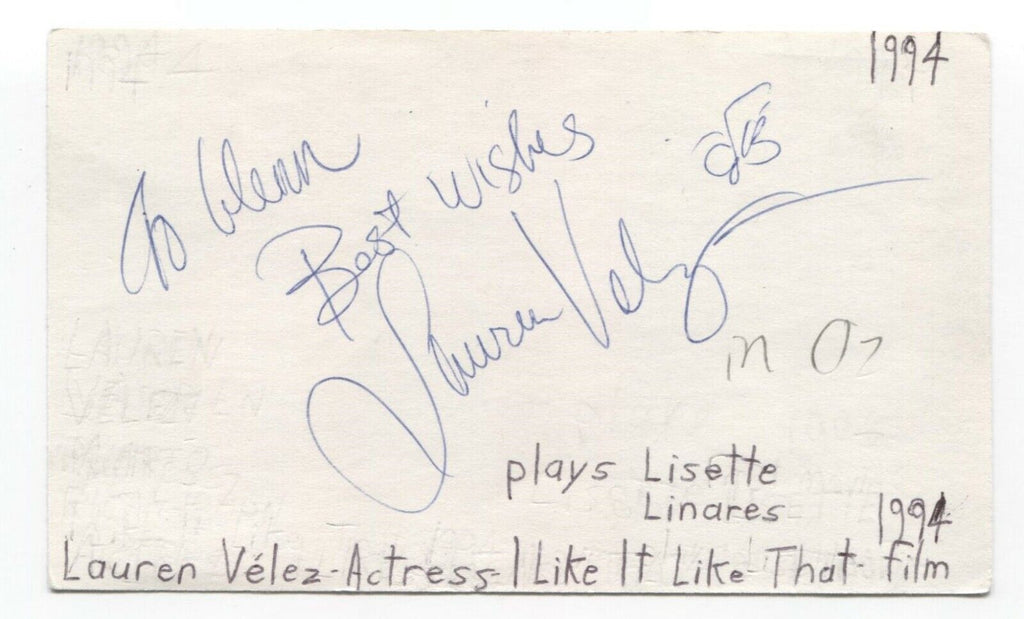 1994
To Glenn
Best Wishes
Lauren Velez
in Oz
plays Lisette
Linares
1994
Lauren Vélez-Actress-I Like It Like That-film
LAUREN
VÉLEZ